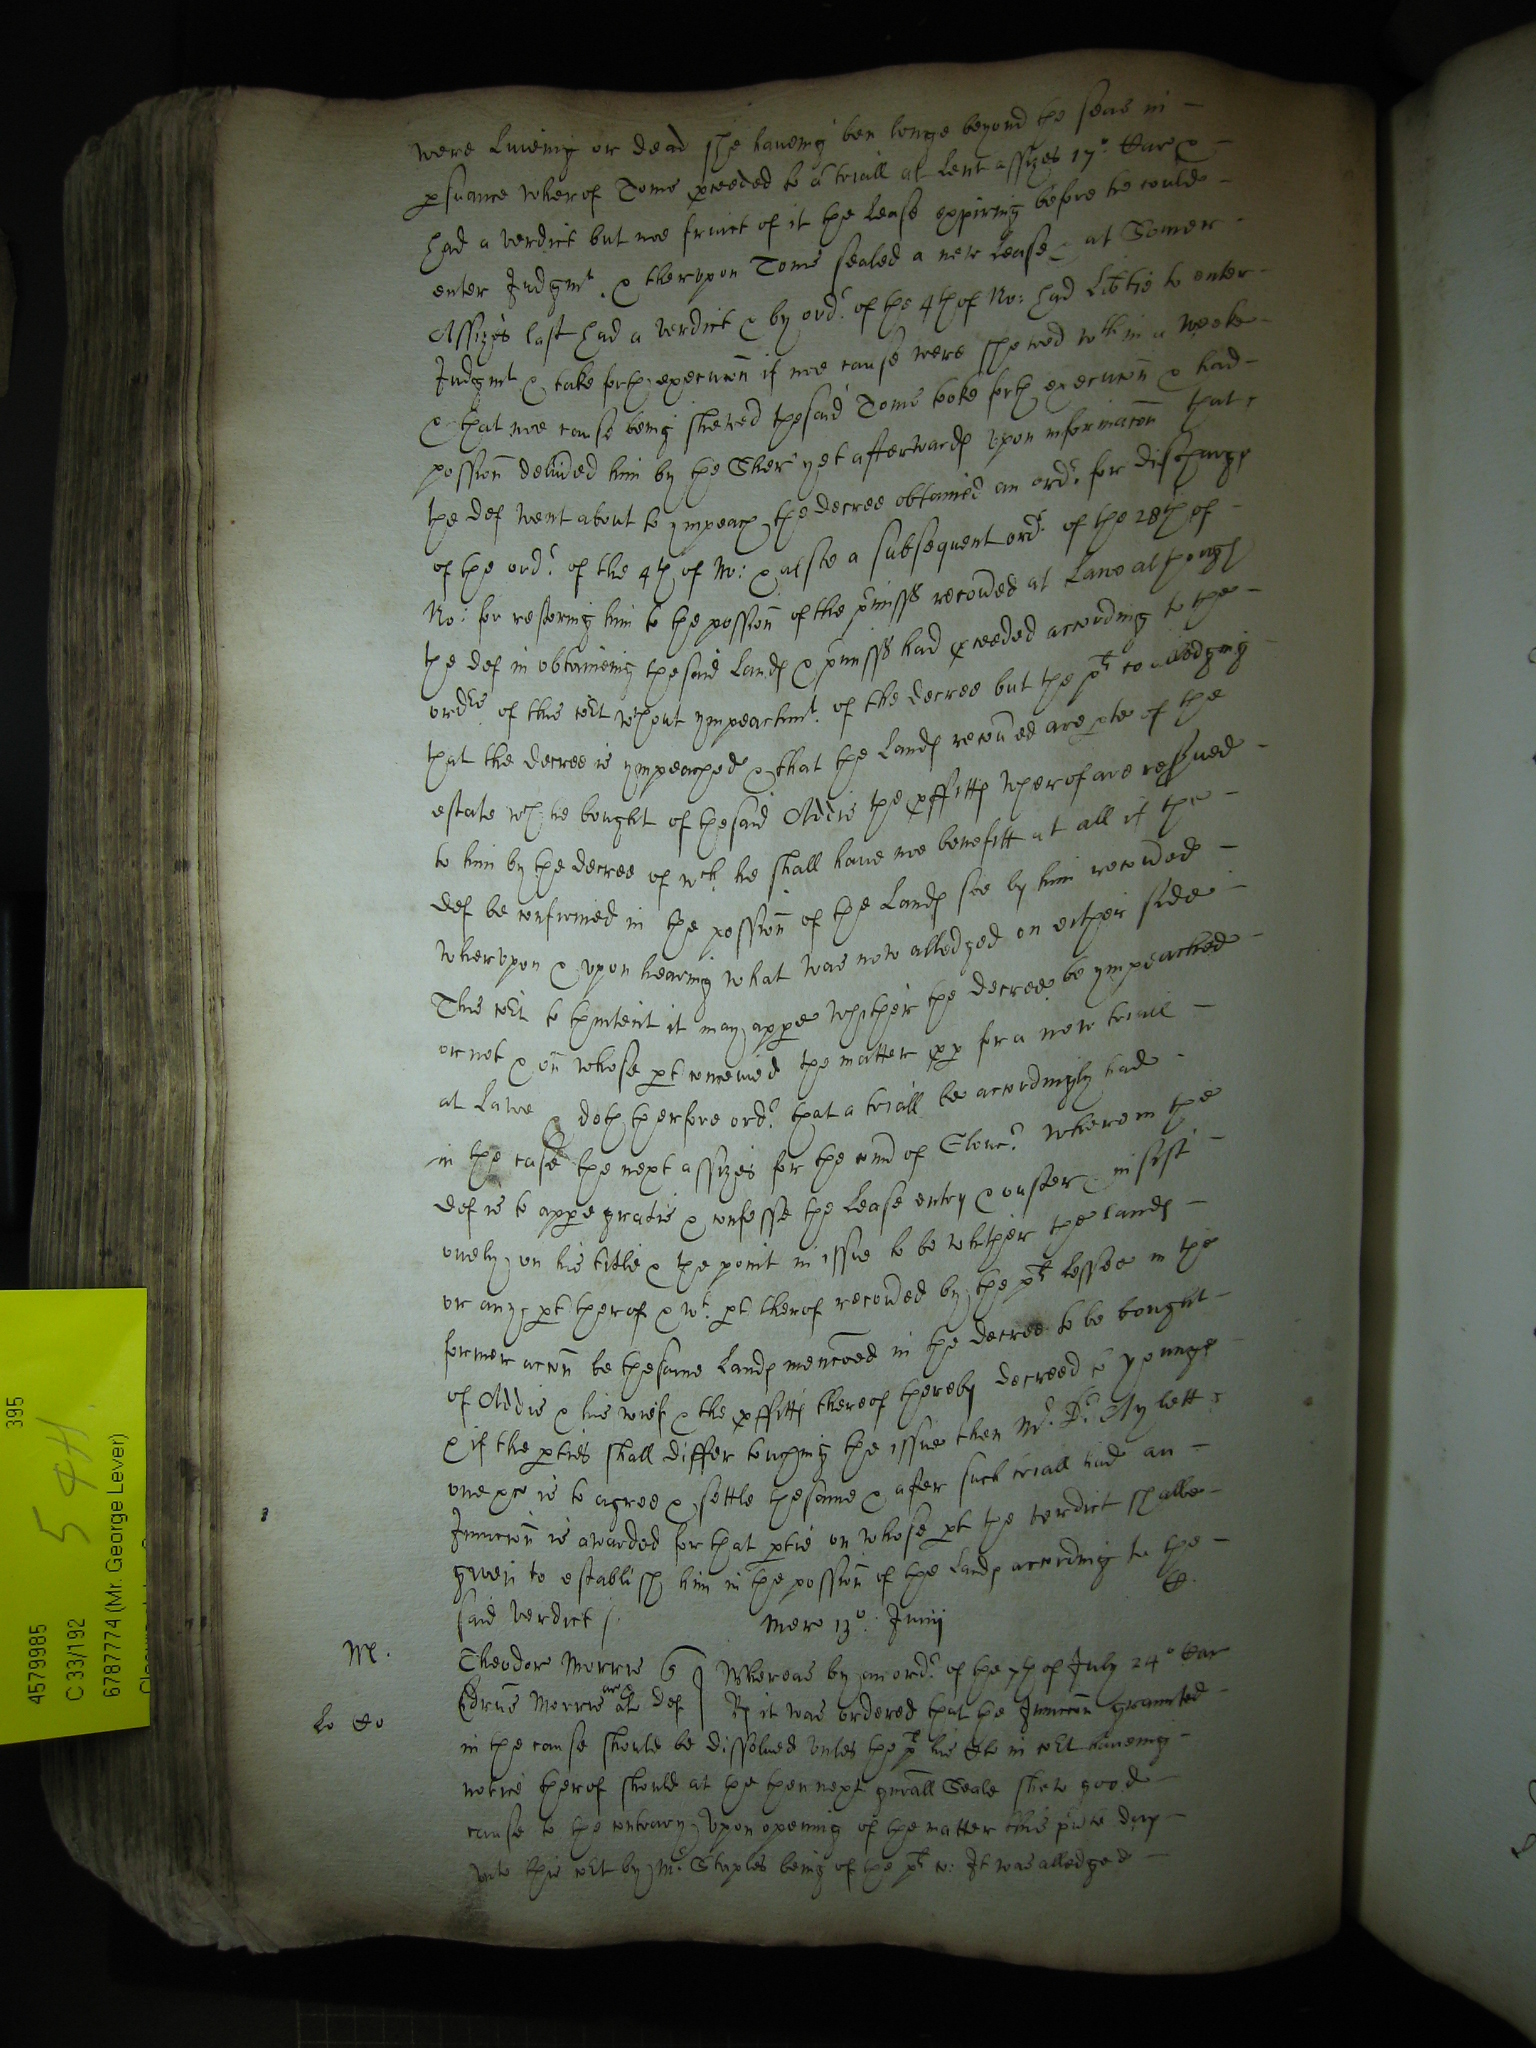 were liveing or dead she haveing ben longe beyond the seas in
psuance wherof Toms pceeded to a triall at lent assizes 17º Car &
had a verdict but noe fruict of it the lease expiring before he could
enter Judgmt & therupon Toms sealed a new lease & at Somer
Assizes last had a verdict & by ordr of the 4th of No: had libtie to enter
Judgmt & take forth execucon if noe cause were shewed wthin a weeke
& that noe cause being shewed thesaid Toms tooke forth execucon & had
possion delivred him by the Sher yet afterwards upon informacon that
the def went about to impeach the decree obtained an ordr for discharge
of the ordr of the 4th of No: & alsoe a subsequent ordr of the 28th of
No: for restoring him to the possion of the pmisses recovred at Lawe although
the def in obtaineing thesaid lands & pmisses had pceeded according to the
ordrs of this cort wthout impeachmt of the decree but the plt alledging
that the decree is impeached & that the lands recovred are pte of the
estate wch he bought of thesaid Addis the pffitts wherof are resrved
to him by the decree of wch he shall have noe benefitt at all if the
def be confirmed in the possion of the lands soe by him recovred
wherupon & upon hearing what was now alledged on either side
This cort to thintent it may appe whither the decree be impeached
or not & on whose pt conceived the matter pp for a new triall
at Lawe & doth therfore ordr that a triall be accordingly had
in the case the next assizes for the com of Glouc wherein the
def is to appe gratis & confesse the lease entry & ouster & insist
onely on his title & the point in issue to be whither the lands
or any pt therof & wt pt therof recovred by the plts lessee in the
former accon be thesame lands mencoed in the decree to be bought
of Addis & his wief & the pffitts thereof thereby decreed to younge
& if the pties shall differ touching the issue then Mr Dr Aylett
one &c is to agree & settle thesame & after such triall had an
Juncion is awarded for that ptie on whose pt the verdict shalbe
given to establish him in the possion of the lands according to the
said verdict /
Merc 13º: Junij
Mr.
Theodore Morris q
Edrus Morris ar & al def
Whereas by an ordr of the 7th of July 24º Car
Rs it was ordered that the Juncion graunted
in the cause should be dissolved unles the plt his Cto in cort haveing
notice therof should at the then next gnrall Seale shew good
cause to the contrary, upon opening of the matter this pnte day
unto this cort by Mr Staples being of the plts co: It was alledged
4579985
C 33/192
6787774 (Mr. George Lever)
395